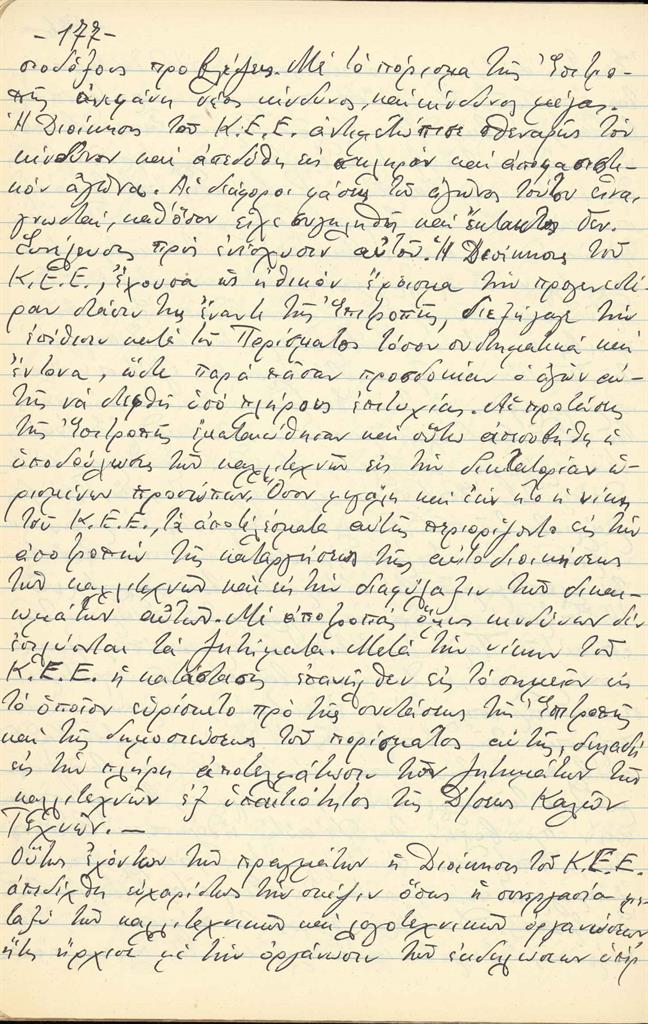 -177-
σιοδόξους προβλέψεις. Μέ τό πόρισμα τῆς Ἐπιτρο-
πῆς ἀνεφάνη νέος κίνδυνος, καί κίνδυνος μέγας.
Ἡ Διοίκησις τοῦ Κ.Ε.Ε. ἀντιμετώπισε σθεναρῶς τόν
κίνδυνον καί ἀπεδύθη εἰς σκληρόν καί ἀποφασιστι-
κόν ἀγῶνα. Αἱ διάφοροι φάσεις τοῦ ἀγῶνος τούτου εἶναι
γνωσταί, καθ' ὅσον εἶχε συγκληθῆ καί ἔκτακτος Γεν.
Συνέλευσις πρός ἐνίσχυσιν αὐτοῦ. Ἡ Διοίκησις τοῦ
Κ.Ε.Ε., ἔχουσα ὡς ἠθικόν ἔρεισμα τήν προγενεστέ-
ραν στάσιν της ἔναντι τῆς Ἐπιτροπῆς, διεξήγαγε τήν
ἐπίθεσιν κατά τοῦ Πορίσματος τόσον συστηματικά καί
ἔντονα, ὥστε παρά πᾶσαν προσδοκίαν ὁ ἀγών αὐ-
τῆς νά στεφθῆ ὑπό πλήρους ἐπιτυχίας. Αἱ προτάσεις
τῆς Ἐπιτροπῆς ἐματαιώθησαν καί οὕτω ἀπεσοβήθη ἡ
ὑποδούλωσις τῶν καλλιτεχνῶν εἰς τήν δικτατορίαν ὡ-
ρισμένων προσώπων. Ὅσον μεγάλη καί ἐάν ἦτο ἡ νίκη
τοῦ Κ.Ε.Ε., τά ἀποτελέσματα αὐτῆς περιορίζοντο εἰς τήν
ἀποτροπήν τῆς καταργήσεως τῆς αὐτοδιοικήσεως
τῶν καλλιτεχνῶν καί εἰς τήν διαφύλαξιν τῶν δικαι-
ωμάτων αὐτῶν. Μέ ἀποτροπάς ὅμως κινδύνων δέν
ἐπιλύονται τά ζητήματα. Μετά τήν νίκην τοῦ
Κ.Ε.Ε. ἡ κατάστασις ἐπανῆλθεν εἰς τό σημεῖον εἰς
τό ὁποῖον εὑρίσκετο πρό τῆς συστάσεως τῆς Ἐπιτροπῆς
καί τῆς δημοσιεύσεως τοῦ πορίσματος αὐτῆς, δηλαδή
εἰς τήν πλήρη ἀποτελμάτωσιν τῶν ζητημάτων τῶν
καλλιτεχνῶν ἐξ ὑπαιτιότητος τῆς Δ/σεως Καλῶν
Τεχνῶν. —
Οὕτως ἐχόντων τῶν πραγμάτων ἡ Διοίκησις τοῦ Κ.Ε.Ε.
ἀπεδέχθη εὐχαρίστως τήν σκέψιν ὅπως ἡ συνεργασία με-
ταξύ τῶν καλλιτεχνικῶν καί λογοτεχνικῶν ὀργανώσεων
ἥτις ἤρχισε μέ τήν ὀργάνωσιν τῶν ἐκδηλώσεων ὑπέρ